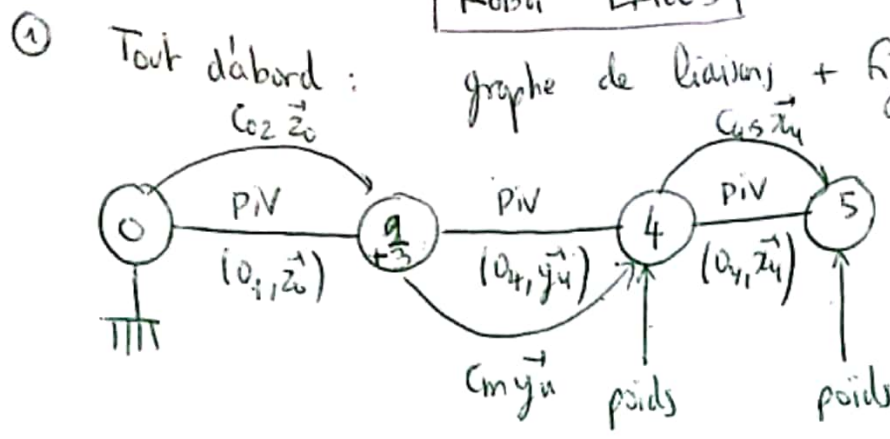 ① Tout d'abord : graphe de liaisons +
C₀₂ z⃗₀
C₄₅ x⃗₄
0 PiV PiV 4 PiV 5
(O₁, z⃗₀) (O₄, y⃗₄) (O₄, x⃗₄)
Cm y⃗₄
poids poids